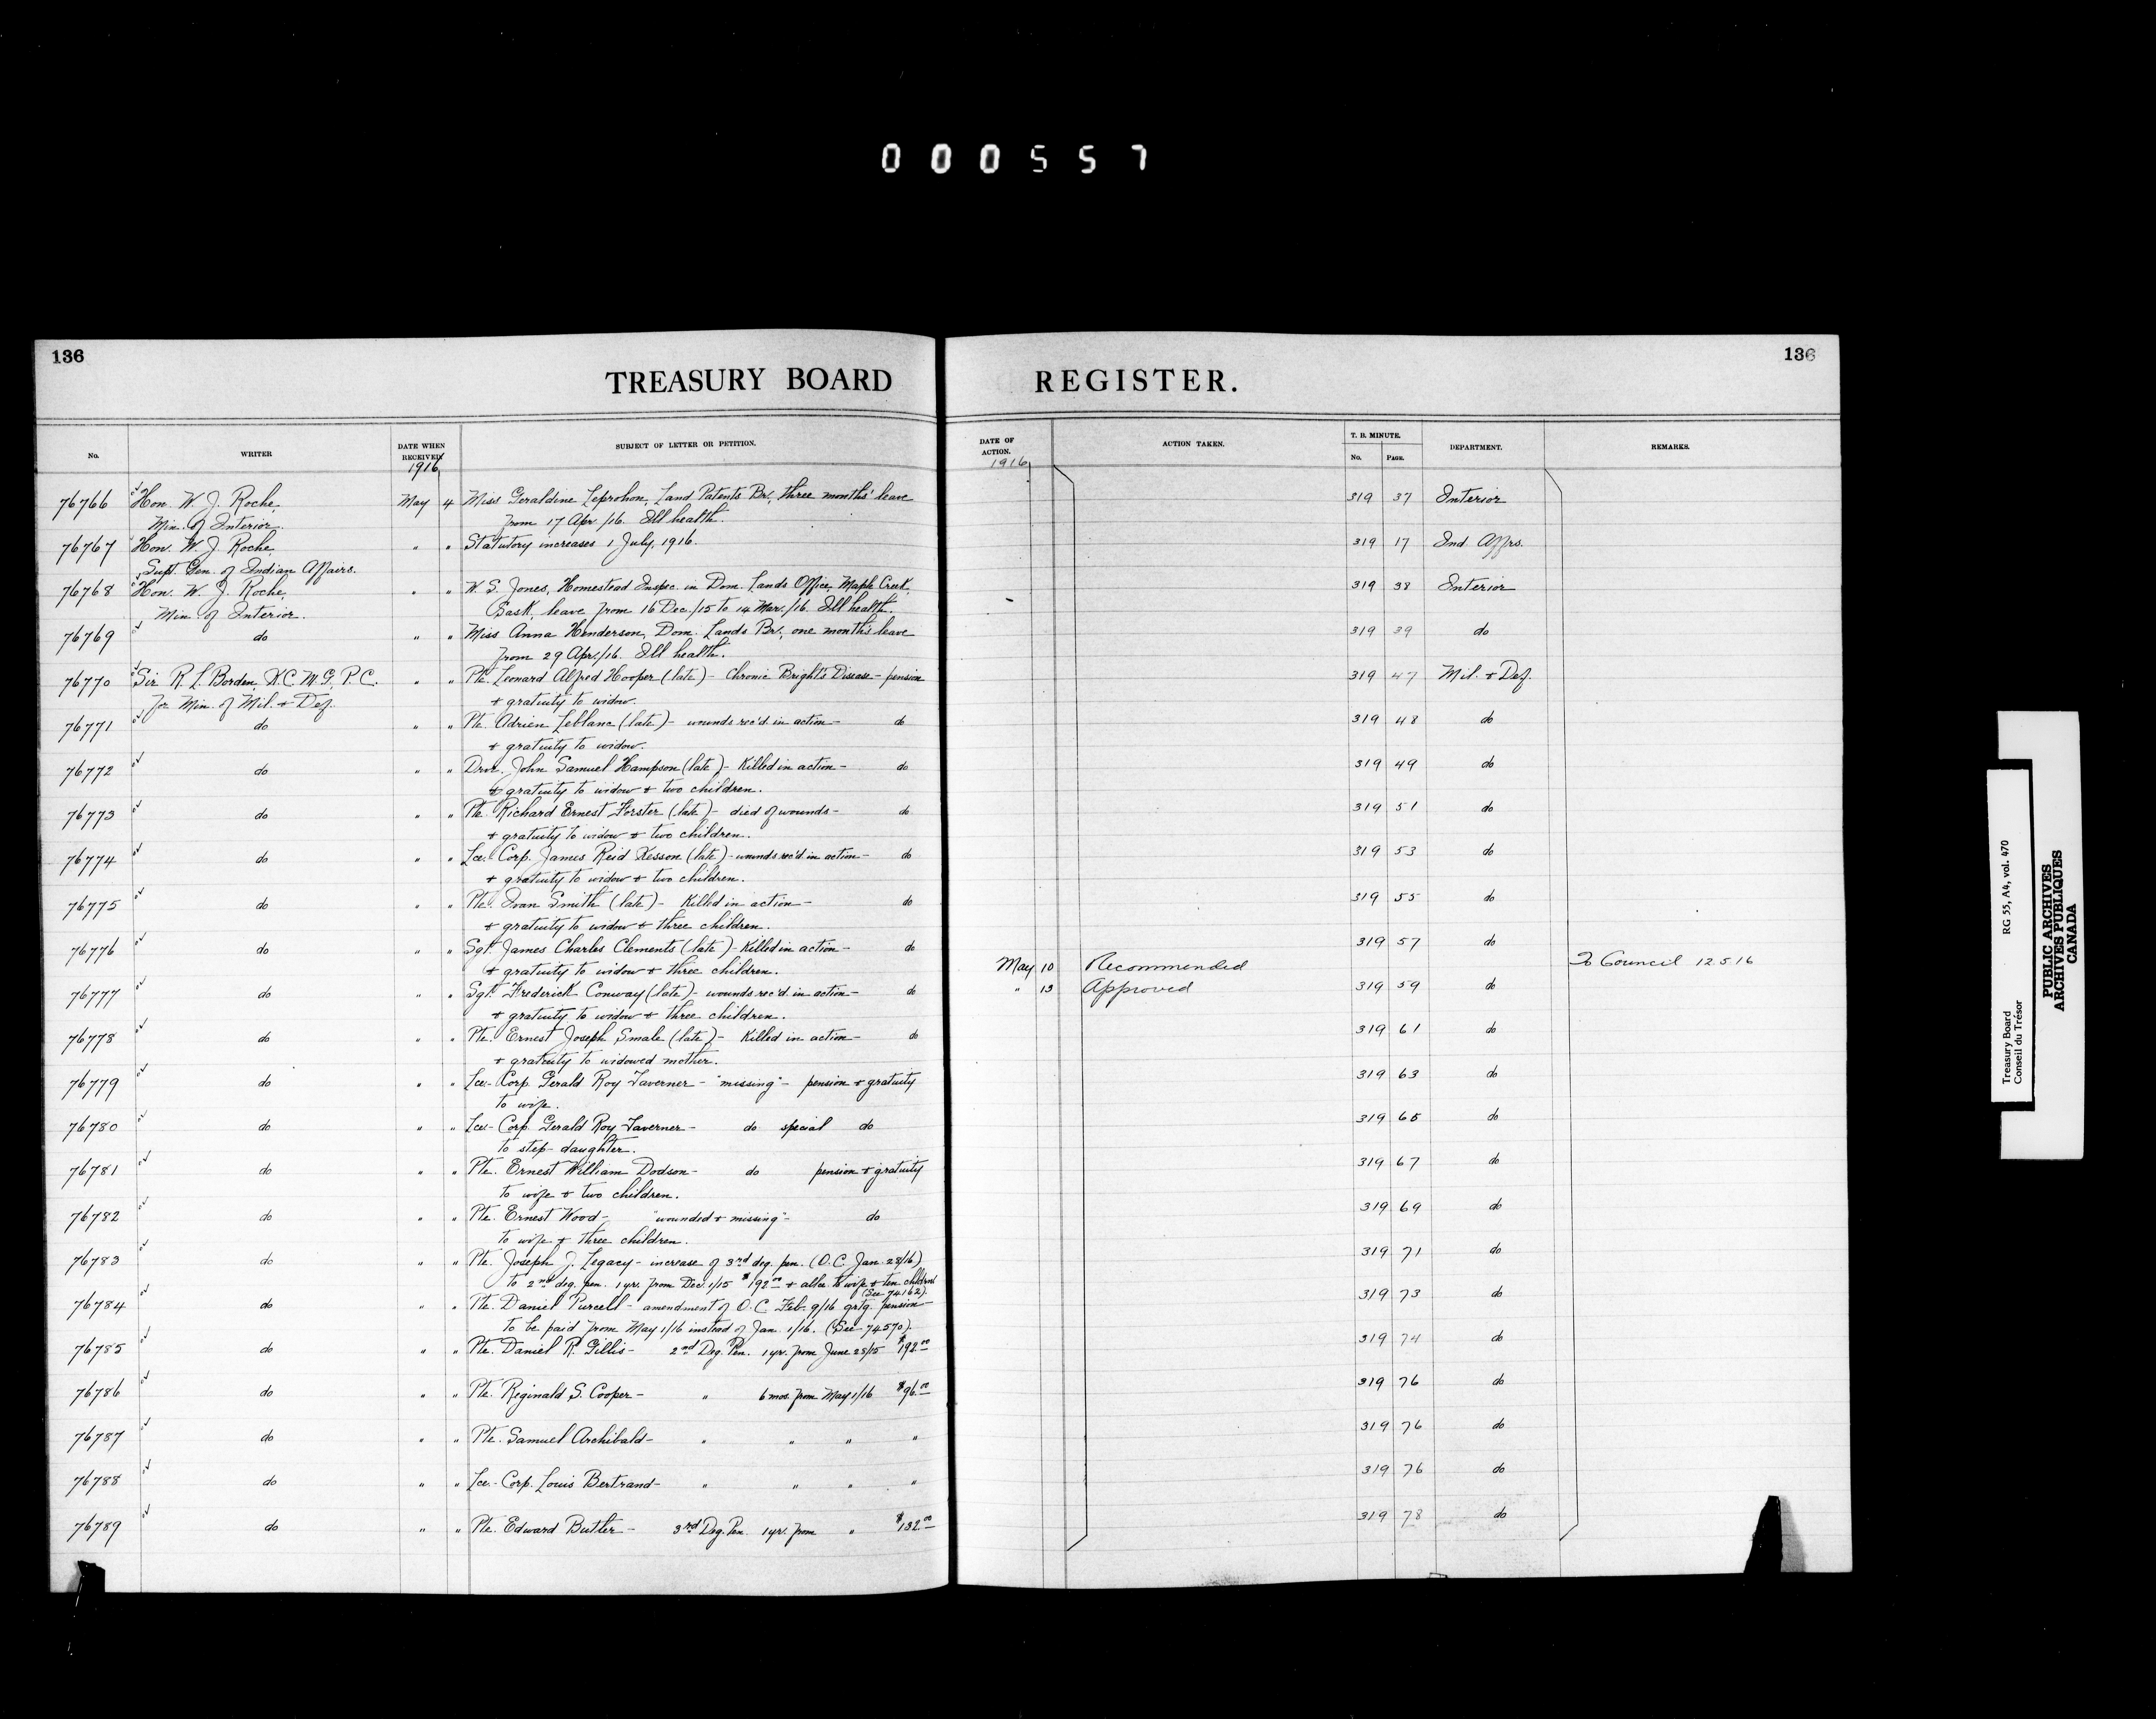 000557
136
136
TREASURY BOARD REGISTER.
No.
WRITER
DATE WHEN RECEIVED
SUBJECT OF LETTER OR PETITION.
DATE OF ACTION.
ACTION TAKEN.
T. B. MINUTE.
No. PAGE.
DEPARTMENT.
REMARKS.
1916
1916
76766 Hon. W. J. Roche, May 4 Miss Geraldine Leprohon, Land Patents Br., three months' leave 319 37 Interior
Min. of Interior. from 17 Apr./16. Ill health.
76767 Hon. W. J. Roche, " " Statutory increases 1 July, 1916. 319 17 Ind. Affrs.
Supt. Gen. of Indian Affairs.
76768 Hon. W. J. Roche, " " W. S. Jones, Homestead Inspec. in Dom. Lands Office, Maple Creek, 319 38 Interior
Min. of Interior. Sask., leave from 16 Dec./15 to 14 Mar./16. Ill health.
76769 do " " Miss Anna Henderson, Dom. Lands Br., one month's leave 319 39 do
from 29 Apr./16. Ill health.
76770 Sir R. L. Borden, K.C.M.G., P.C. " " Pte. Leonard Alfred Hooper (late) - Chronic Bright's Disease - pension 319 47 Mil. & Def.
for Min. of Mil. & Def. & gratuity to widow.
76771 do " " Pte. Adrien Leblanc (late) - wounds rec'd in action - do 319 48 do
& gratuity to widow.
76772 do " " Drvr. John Samuel Hampson (late) - Killed in action - do 319 49 do
& gratuity to widow & two children.
76773 do " " Pte. Richard Ernest Forster (late) - died of wounds - do 319 51 do
& gratuity to widow & two children.
76774 do " " Lce. Corp. James Reid Kesson (late) - wounds rec'd in action - do 319 53 do
& gratuity to widow & two children.
76775 do " " Pte. Ivan Smith (late) - Killed in action - do 319 55 do
& gratuity to widow & three children.
76776 do " " Sgt. James Charles Clements (late) - Killed in action - do 319 57 do
& gratuity to widow & three children. May 10 Recommended To Council 12.5.16
76777 do " " Sgt. Frederick Conway (late) - wounds rec'd in action - do " 13 Approved 319 59 do
& gratuity to widow & three children.
76778 do " " Pte. Ernest Joseph Smale (late) - Killed in action - do 319 61 do
& gratuity to widowed mother.
76779 do " " Lce.-Corp. Gerald Roy Taverner - "missing" - pension & gratuity 319 63 do
to wife.
76780 do " " Lce.-Corp. Gerald Roy Taverner - do special do 319 65 do
to step-daughter.
76781 do " " Pte. Ernest William Dodson - do pension & gratuity 319 67 do
to wife & two children.
76782 do " " Pte. Ernest Wood - "wounded & missing" - do 319 69 do
to wife & three children.
76783 do " " Pte. Joseph J. Legacy - increase of 3rd deg. pen. (O.C. Jan. 28/16) 319 71 do
to 2nd deg. pen. 1 yr. from Dec. 1/15 $192.00 & allce to wife & ten children
(See 74162).
76784 do " " Pte. Daniel Purcell - amendment of O.C. Feb. 9/16 grtg. pension - 319 73 do
to be paid from May 1/16 instead of Jan. 1/16. (See 74570).
76785 do " " Pte. Daniel R. Gillis - 2nd Deg. Pen. 1 yr. from June 28/15 $192.00 319 74 do
76786 do " " Pte. Reginald S. Cooper - " 6 mos. from May 1/16 $96.00 319 76 do
76787 do " " Pte. Samuel Archibald - " " " " 319 76 do
76788 do " " Lce.-Corp. Louis Bertrand - " " " " 319 76 do
76789 do " " Pte. Edward Butler - 3rd Deg. Pen. 1 yr. from " $132.00 319 78 do
Treasury Board RG 55, A4, vol. 470
Conseil du Trésor
PUBLIC ARCHIVES
ARCHIVES PUBLIQUES
CANADA